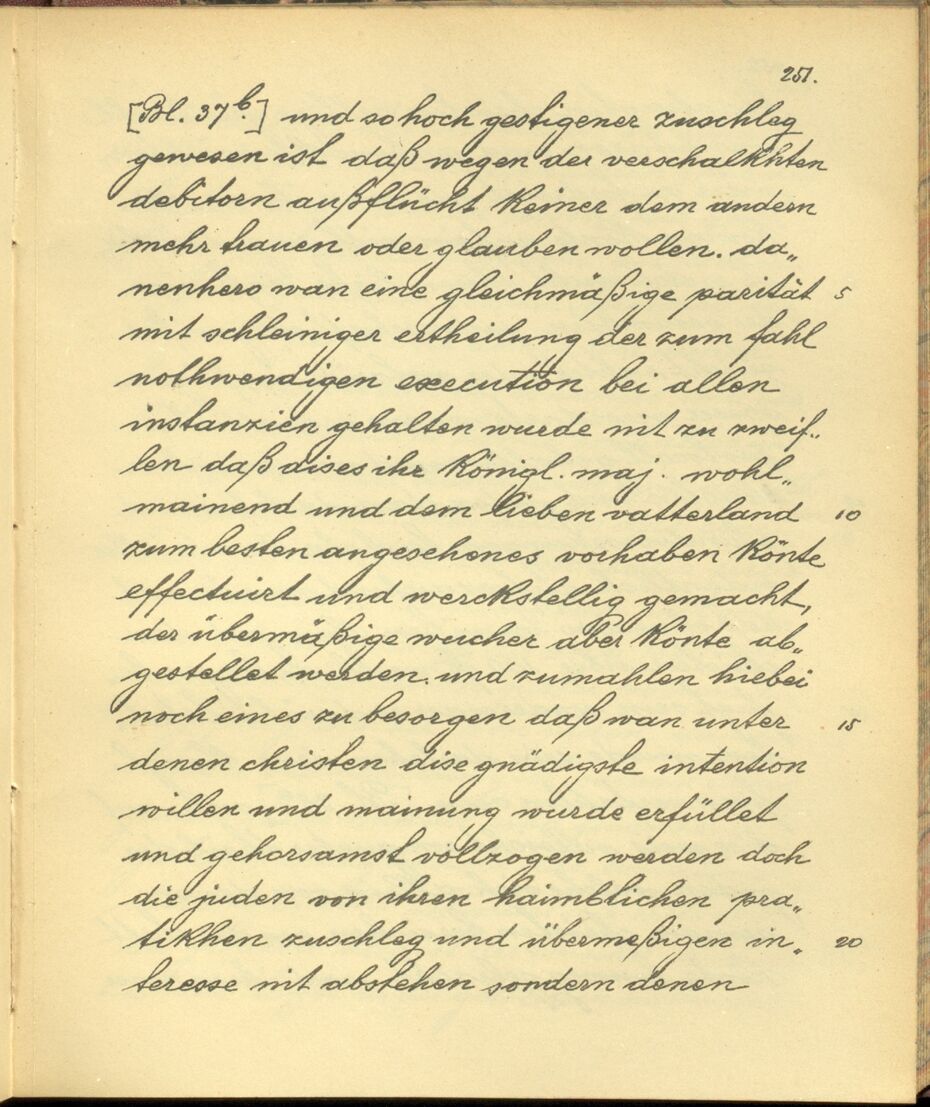 251.
[Bl. 37b.] und so hoch gestigener zuschleg
gewesen ist daß wegen der verschalkhten
debitorn außflücht keiner dem andern
mehr trauen oder glauben wollen. da„
nenhero wan eine gleichmäßige parität 5
mit schleiniger ertheilung der zum fahl
nothwendigen execution bei allen
instanzien gehalten wurde nit zu zweif„
len daß dises ihr königl. maj. wohl„
mainend und dem lieben vatterland 10
zum besten angesehenes vorhaben könte
effectuirt und werckstellig gemacht,
der übermäßige wucher aber könte ab„
gestellet werden. und zumahlen hiebei
noch eines zu besorgen daß wan unter 15
denen christen dise gnädigste intention
willen und mainung wurde erfüllet
und gehorsamst vollzogen werden doch
die juden von ihren haimblichen pra„
tikhen zuschleg und übermeßigen in„ 20
teresse nit abstehen sondern denen